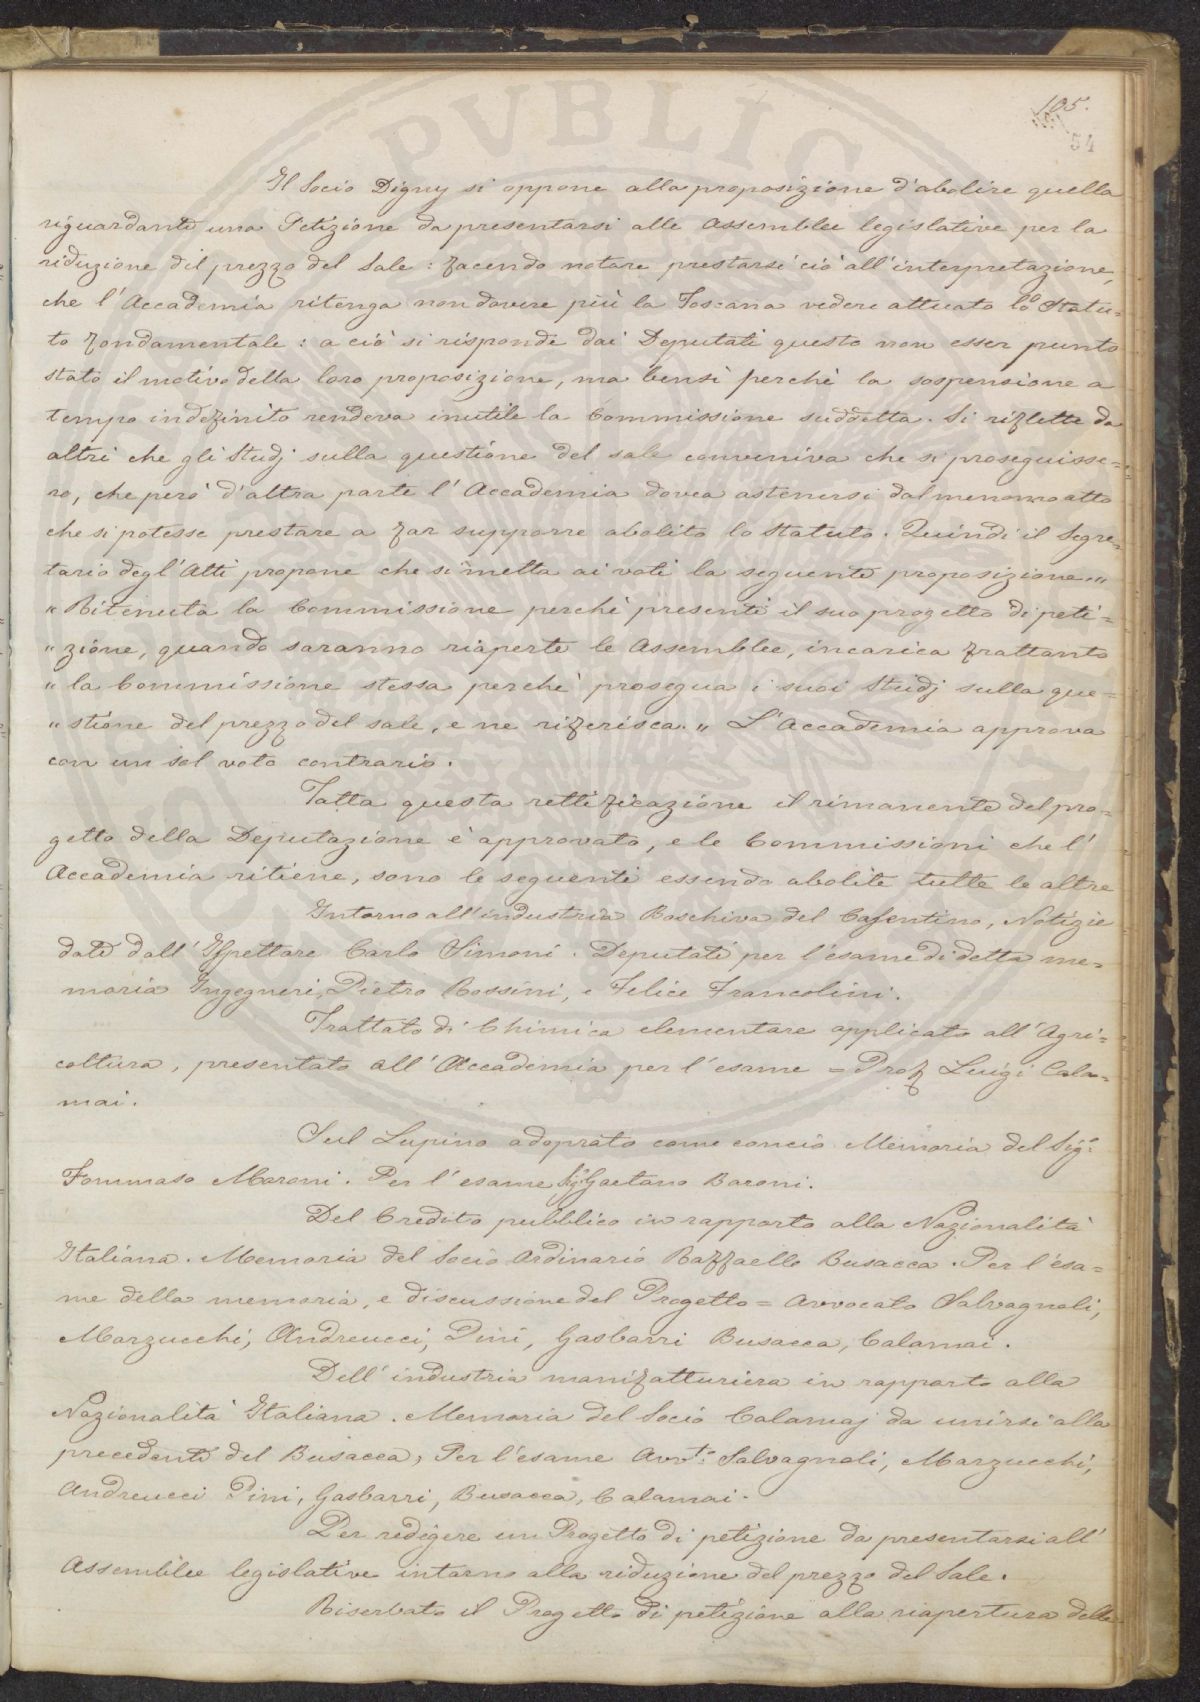 105.
54
Il Socio Digny si oppone alla proposizione d'abolire quella
riguardante una Petizione da presentarsi alle Assemblee legislative per la
riduzione dil prezzo del Sale: facendo notare prestarsi ciò all'interpretazione,
che l'Accademia ritenga non dovere più la Toscana vedere attuato lo Statu-
to fondamentale: a ciò si risponde dai Deputati questo non esser punto
stato il motivo della loro proposizione, ma bensì perchè la sospensione a
tempo indefinito rendeva inutile la Commissione suddetta. Si riflette da
altri che gli Studj sulla questione del sale conveniva che si proseguisse=
ro, che però d'altra parte l'Accademia dovea astenersi dal menomo atto
che si potesse prestare a far supporre abolito lo Statuto. Quindi il Segre=
tario degl'Atti propone che si metta ai voti la seguente proposizione. „
„ Ritenuta la Commissione perchè presenti il suo progetto di peti=
„ zione, quando saranno riaperte le Assemblee, incarica frattanto
„ la Commissione stessa perchè prosegua i suoi Studj sulla que=
„ stione del prezzo del sale, e ne riferisca. „ L'Accademia approva
con un sol voto contrario.
Fatta questa rettificazione il rimanente del pro=
getto della Deputazione è approvato, e le Commissioni che l'
Accademia ritiene, sono le seguenti essendo abolite tutte le altre
Intorno all'industria Boschiva del Casentino, Notizie
date dall'Ispettore Carlo Simoni. Deputati per l'esame di detta me=
moria Ingegneri, Pietro Rossini, e Felice Francolini.
Trattato di Chimica elementare applicato all'Agri=
coltura, presentato all'Accademia per l'esame = Prof Luigi Cala=
mai.
Sul Lupino adoprato come concio Memoria del Sig:
Tommaso Maroni. Per l'esame Sig. Gaetano Baroni.
Del Credito pubblico in rapporto alla Nazionalità
Italiana. Memoria del Socio Ordinario Raffaello Busacca. Per l'esa=
me della memoria, e discussione del Progetto = Avvocato Salvagnoli,
Marzucchi, Andreucci, Pini, Gasbarri Busacca, Calamai.
Dell'industria manifatturiera in rapporto alla
Nazionalità Italiana. Memoria del Socio Calamaj da unirsi alla
precedente del Busacca, Per l'esame Avv.ti Salvagnoli, Marzucchi,
Andreucci Pini, Gasbarri, Busacca, Calamai.
Per redigere un Progetto di petizione da presentarsi all'
Assemblee legislative intorno alla riduzione del prezzo del Sale.
Riserbato il Progetto di petizione alla riapertura delle
PVBLIC